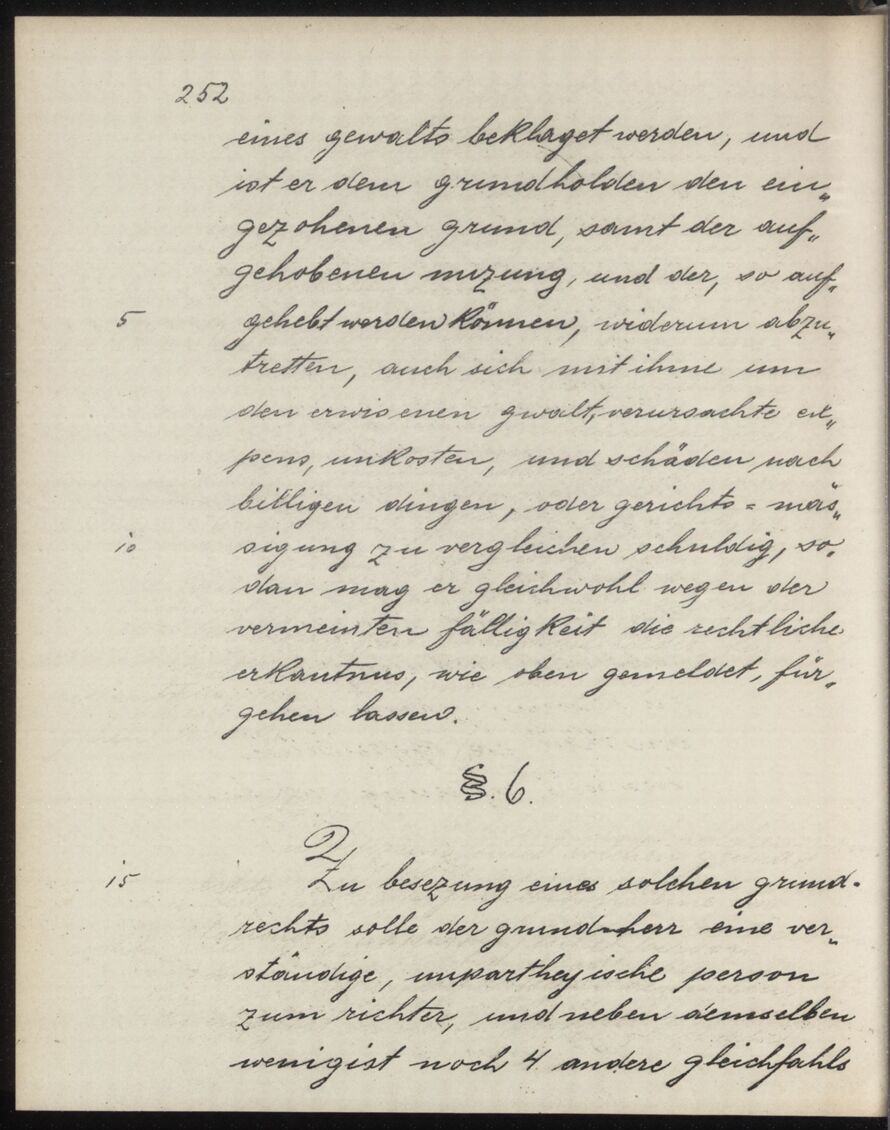 252
eines gewalts beklaget werden, und
ist er dem grundholden den ein„
gezohenen grund, samt der auf„
gehobenen nuzung, und der, so auf„
5 gehebt werden können, widerum abzu„
tretten, auch sich mit ihme um
den erwisenen gwalt, verursachte ex„
pens, unkosten, und schäden nach
billigen dingen, oder gerichts=mäs„
10 sigung zu vergleichen schuldig, so„
dan mag er gleichwohl wegen der
vermeinten fälligkeit die rechtliche
erkantnus, wie oben gemeldet, für„
gehen lassen.
§. 6.
2
15 Zu besezung eines solchen grund-
rechts solle der grund-herr eine ver„
ständige, unpartheyische person
zum richter, und neben demselben
wenigist noch 4 andere gleichfahls